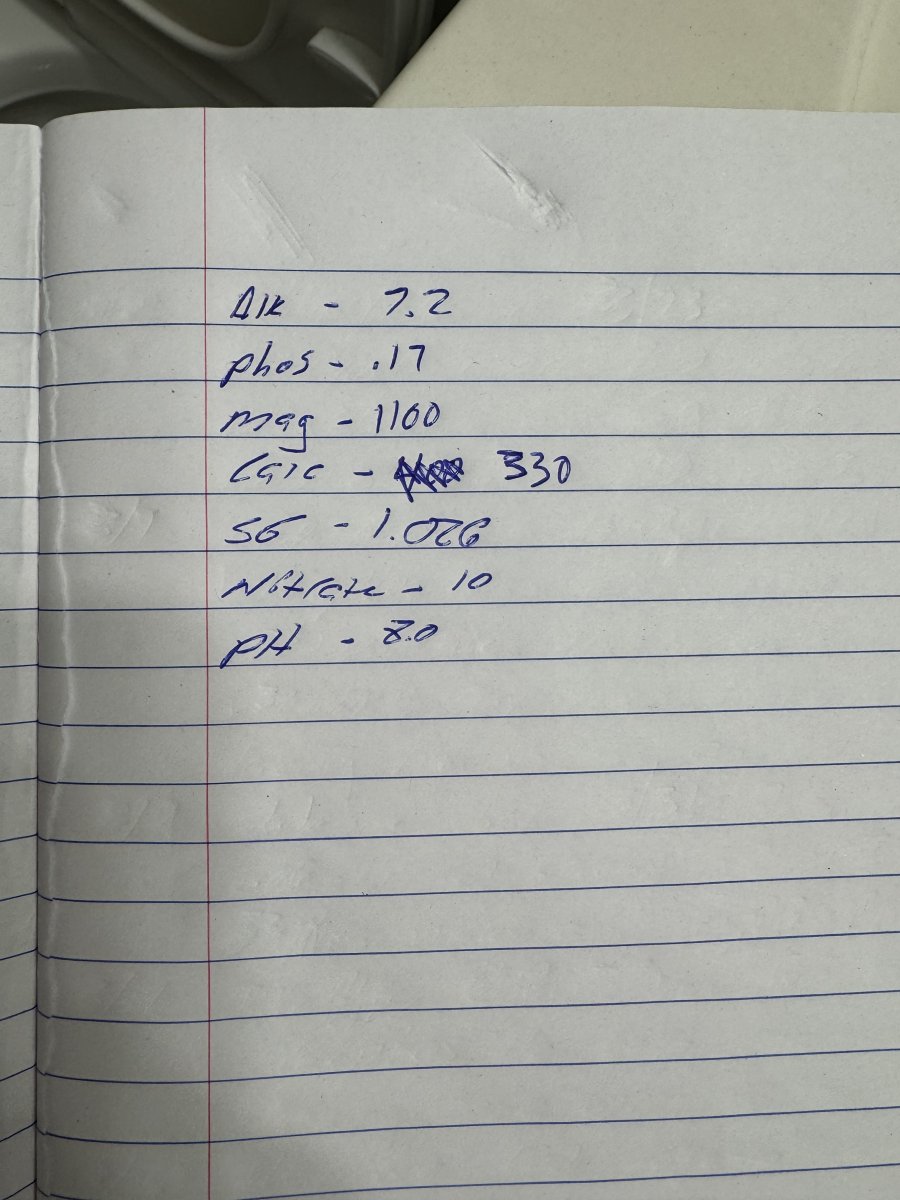 Alk - 7.2
phos - .17
mag - 1100
Calc - 330
SG - 1.026
Nitrate - 10
pH - 8.0